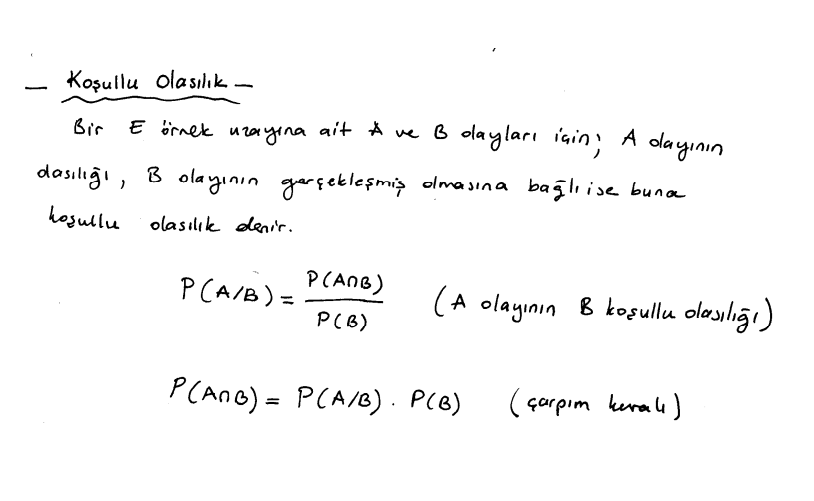 — Koşullu Olasılık —
Bir E örnek uzayına ait A ve B olayları için; A olayının
olasılığı, B olayının gerçekleşmiş olmasına bağlı ise buna
koşullu olasılık denir.
P(A/B) = P(A∩B) / P(B) (A olayının B koşullu olasılığı)
P(A∩B) = P(A/B) . P(B) (çarpım kuralı)